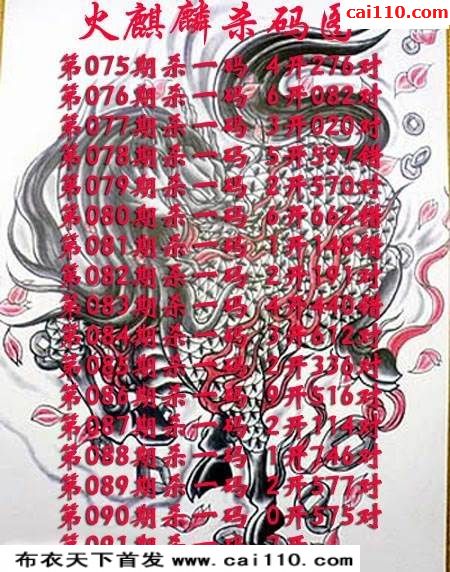 cai110.com
火麒麟杀码图
第075期杀一码 4开276对
第076期杀一码 6开082对
第077期杀一码 3开020对
第078期杀一码 5开597错
第079期杀一码 2开570对
第080期杀一码 6开662错
第081期杀一码 1开148错
第082期杀一码 2开191对
第083期杀一码 4开440错
第084期杀一码 3开612对
第085期杀一码 2开336对
第086期杀一码 9开516对
第087期杀一码 2开114对
第088期杀一码 1开746对
第089期杀一码 2开577对
第090期杀一码 0开575对
第091期杀一码
布衣天下首发 www.cai110.com